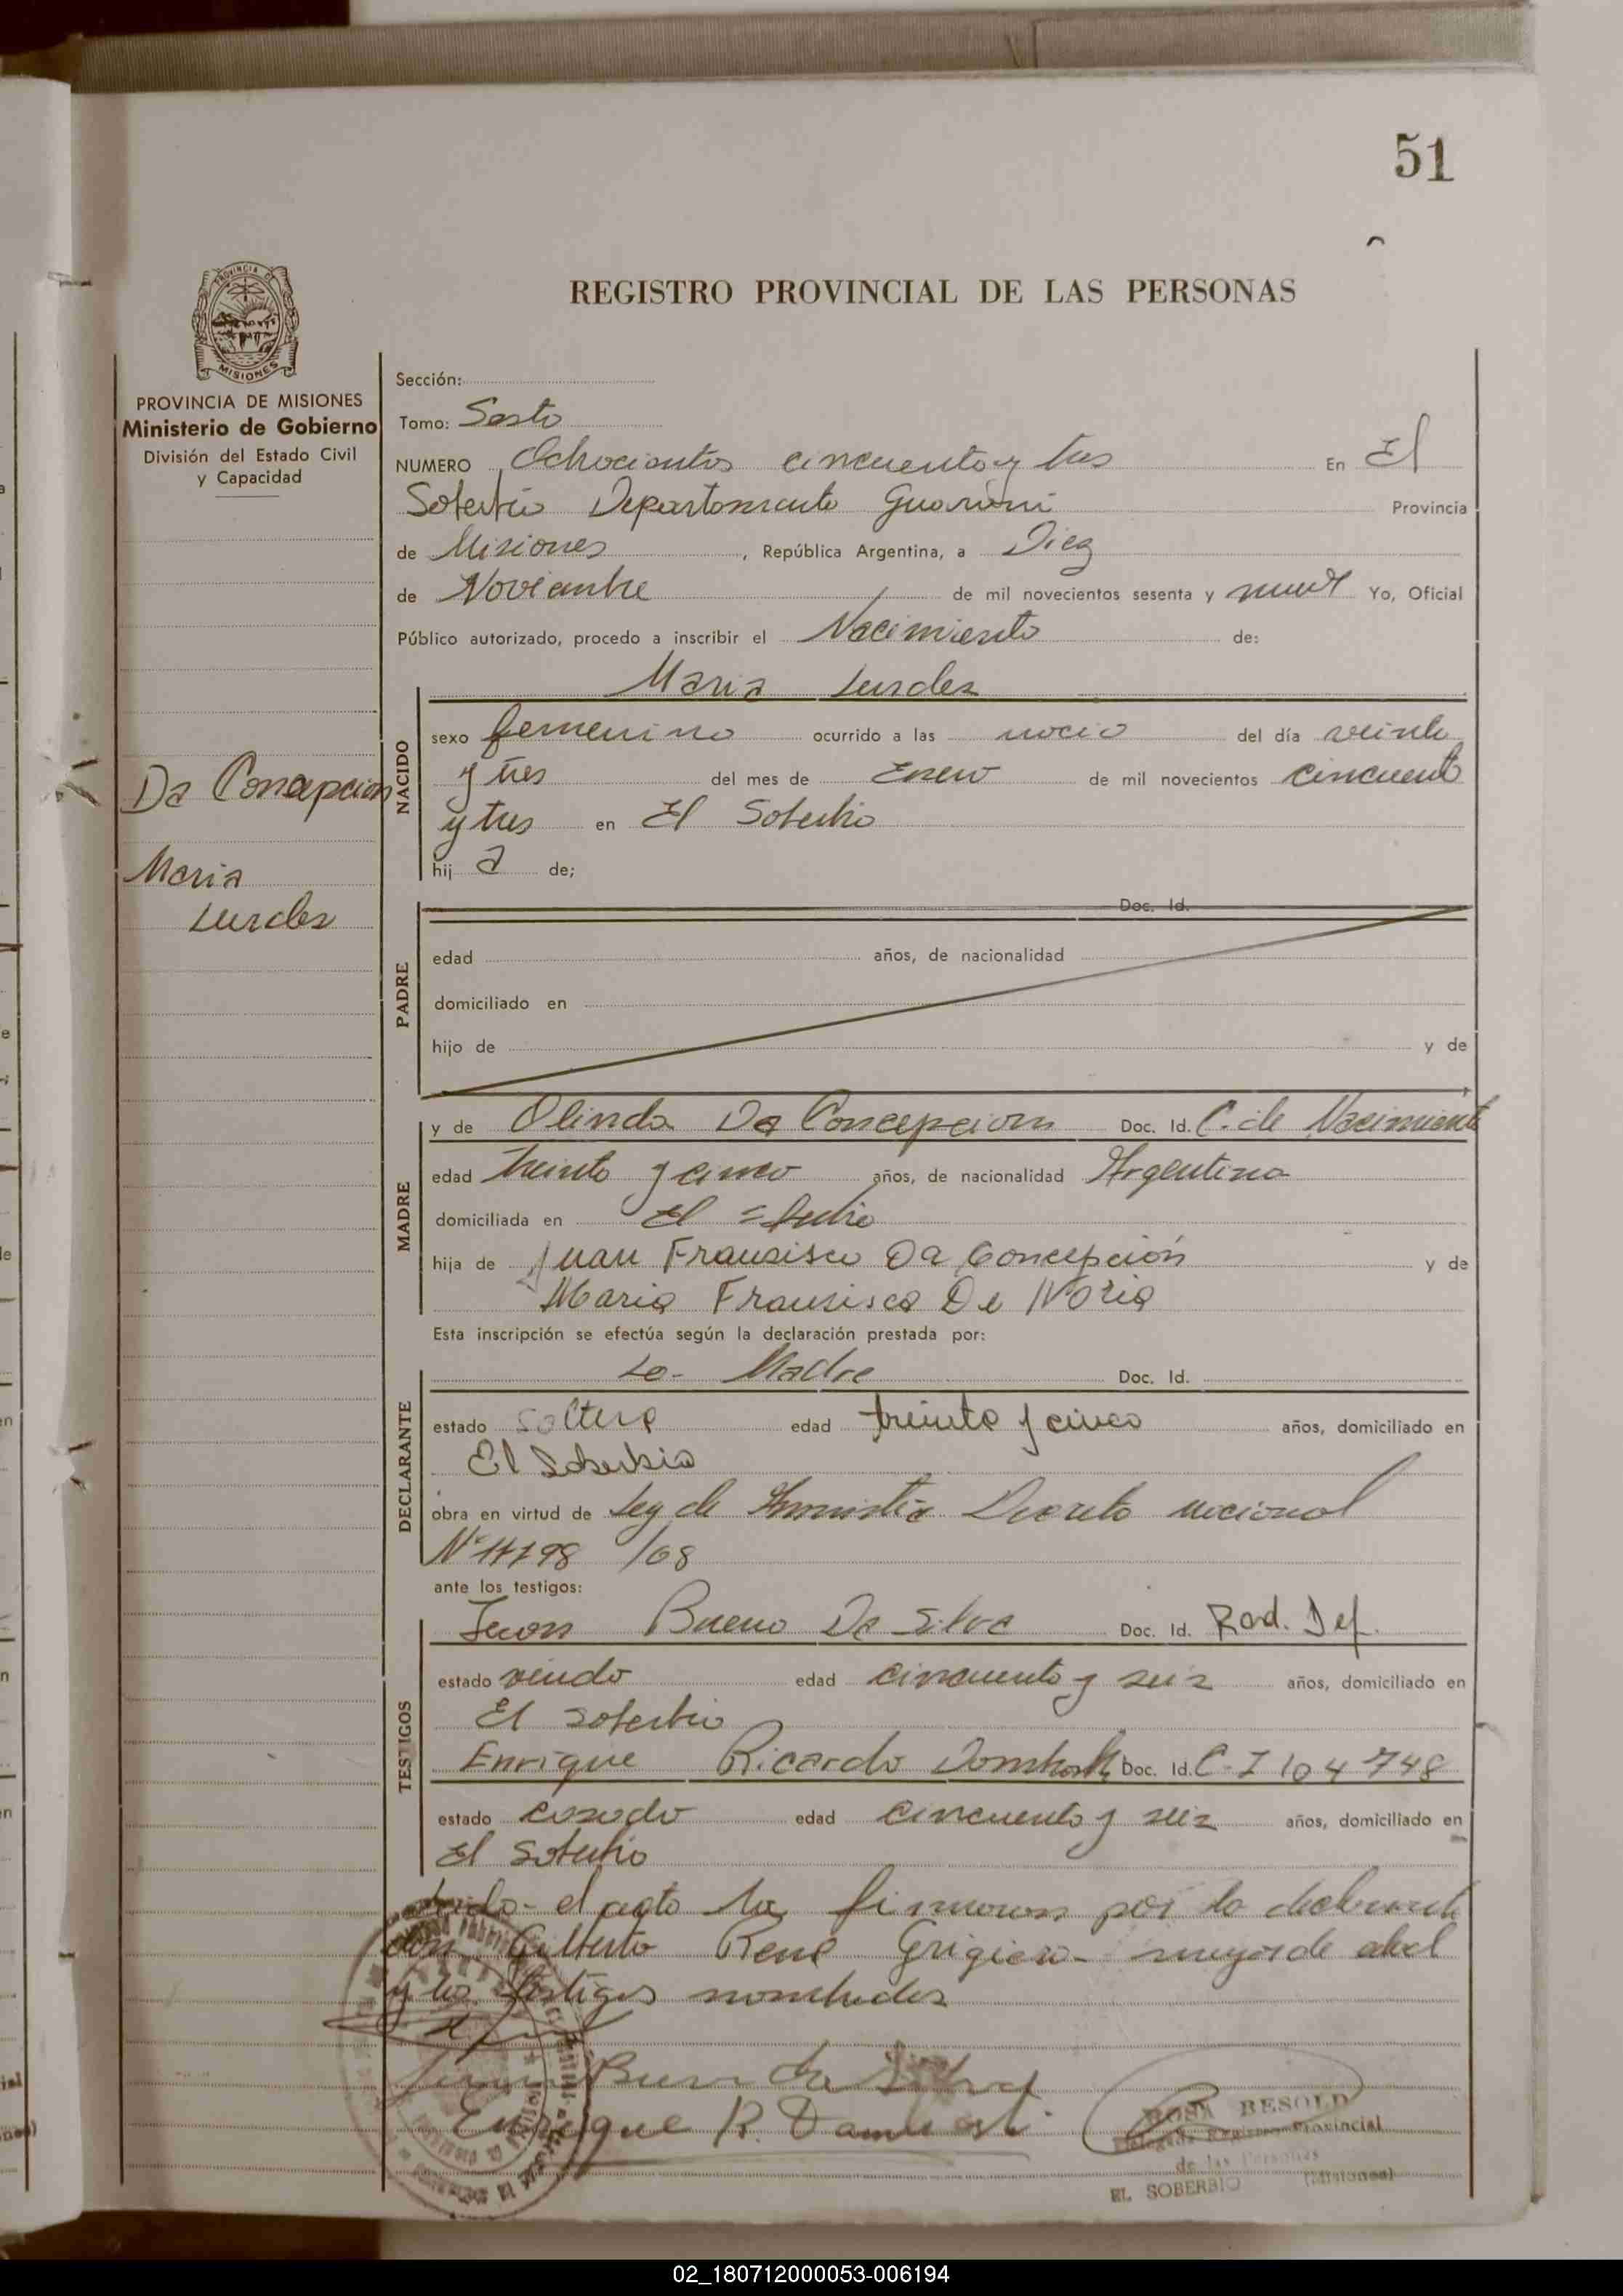 51
REGISTRO PROVINCIAL DE LAS PERSONAS
PROVINCIA DE MISIONES
Ministerio de Gobierno
División del Estado Civil
y Capacidad
Da Concepcion
Maria
Lurdes
Sección:
Tomo: Sesto
NUMERO Ochocientos cincuenta y tres En El
Soberbio Departamento Guarani Provincia
de Misiones, República Argentina, a Diez
de Noviembre de mil novecientos sesenta y nueve Yo, Oficial
Público autorizado, procedo a inscribir el Nacimiento de:
Maria Lurdes
NACIDO
sexo femenino ocurrido a las del día veinte
y tres del mes de Enero de mil novecientos cincuenta
y tres en El Soberbio
hij a de;
PADRE
Doc. Id.
edad años, de nacionalidad
domiciliado en
hijo de y de
MADRE
y de Olinda Da Concepcion Doc. Id. C. de Nacimiento
edad treinta y cinco años, de nacionalidad Argentina
domiciliada en El Soberbio
hija de Juan Francisco Da Concepción y de
Maria Francisca De
Esta inscripción se efectúa según la declaración prestada por:
La Madre Doc. Id.
DECLARANTE
estado soltera edad treinta y cinco años, domiciliado en
El Soberbio
obra en virtud de Ley de Amnistia Decreto nacional
Nº /68
ante los testigos:
TESTIGOS
Juan Bueno Da Silva Doc. Id. Rad. Def.
estado viudo edad cincuenta y seis años, domiciliado en
El Soberbio
Enrique Ricardo Doc. Id. C. I 104748
estado casado edad cincuenta y seis años, domiciliado en
El Soberbio
el acto la firmaron por la declarante
don Gilberto René mayor de edad
y los testigos nombrados
Bueno da Silva
Enrique R.
ROSA BESOLD
Delegada Registro Provincial
de las Personas
EL SOBERBIO (Misiones)
02_180712000053-006194